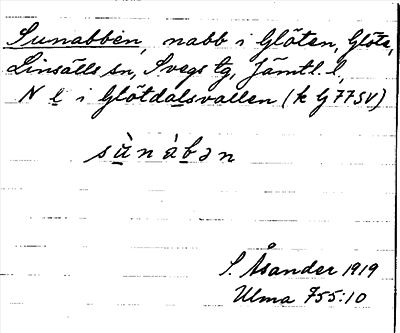 Sunabben, nabb i Glöten, Glöte,
Linsälls sn, Svegs tg, Jämtl. l,
N l i Glötdalsvallen (k G 77 SV)
sùnàbən
S. Åsander 1919
Ulma 755:10